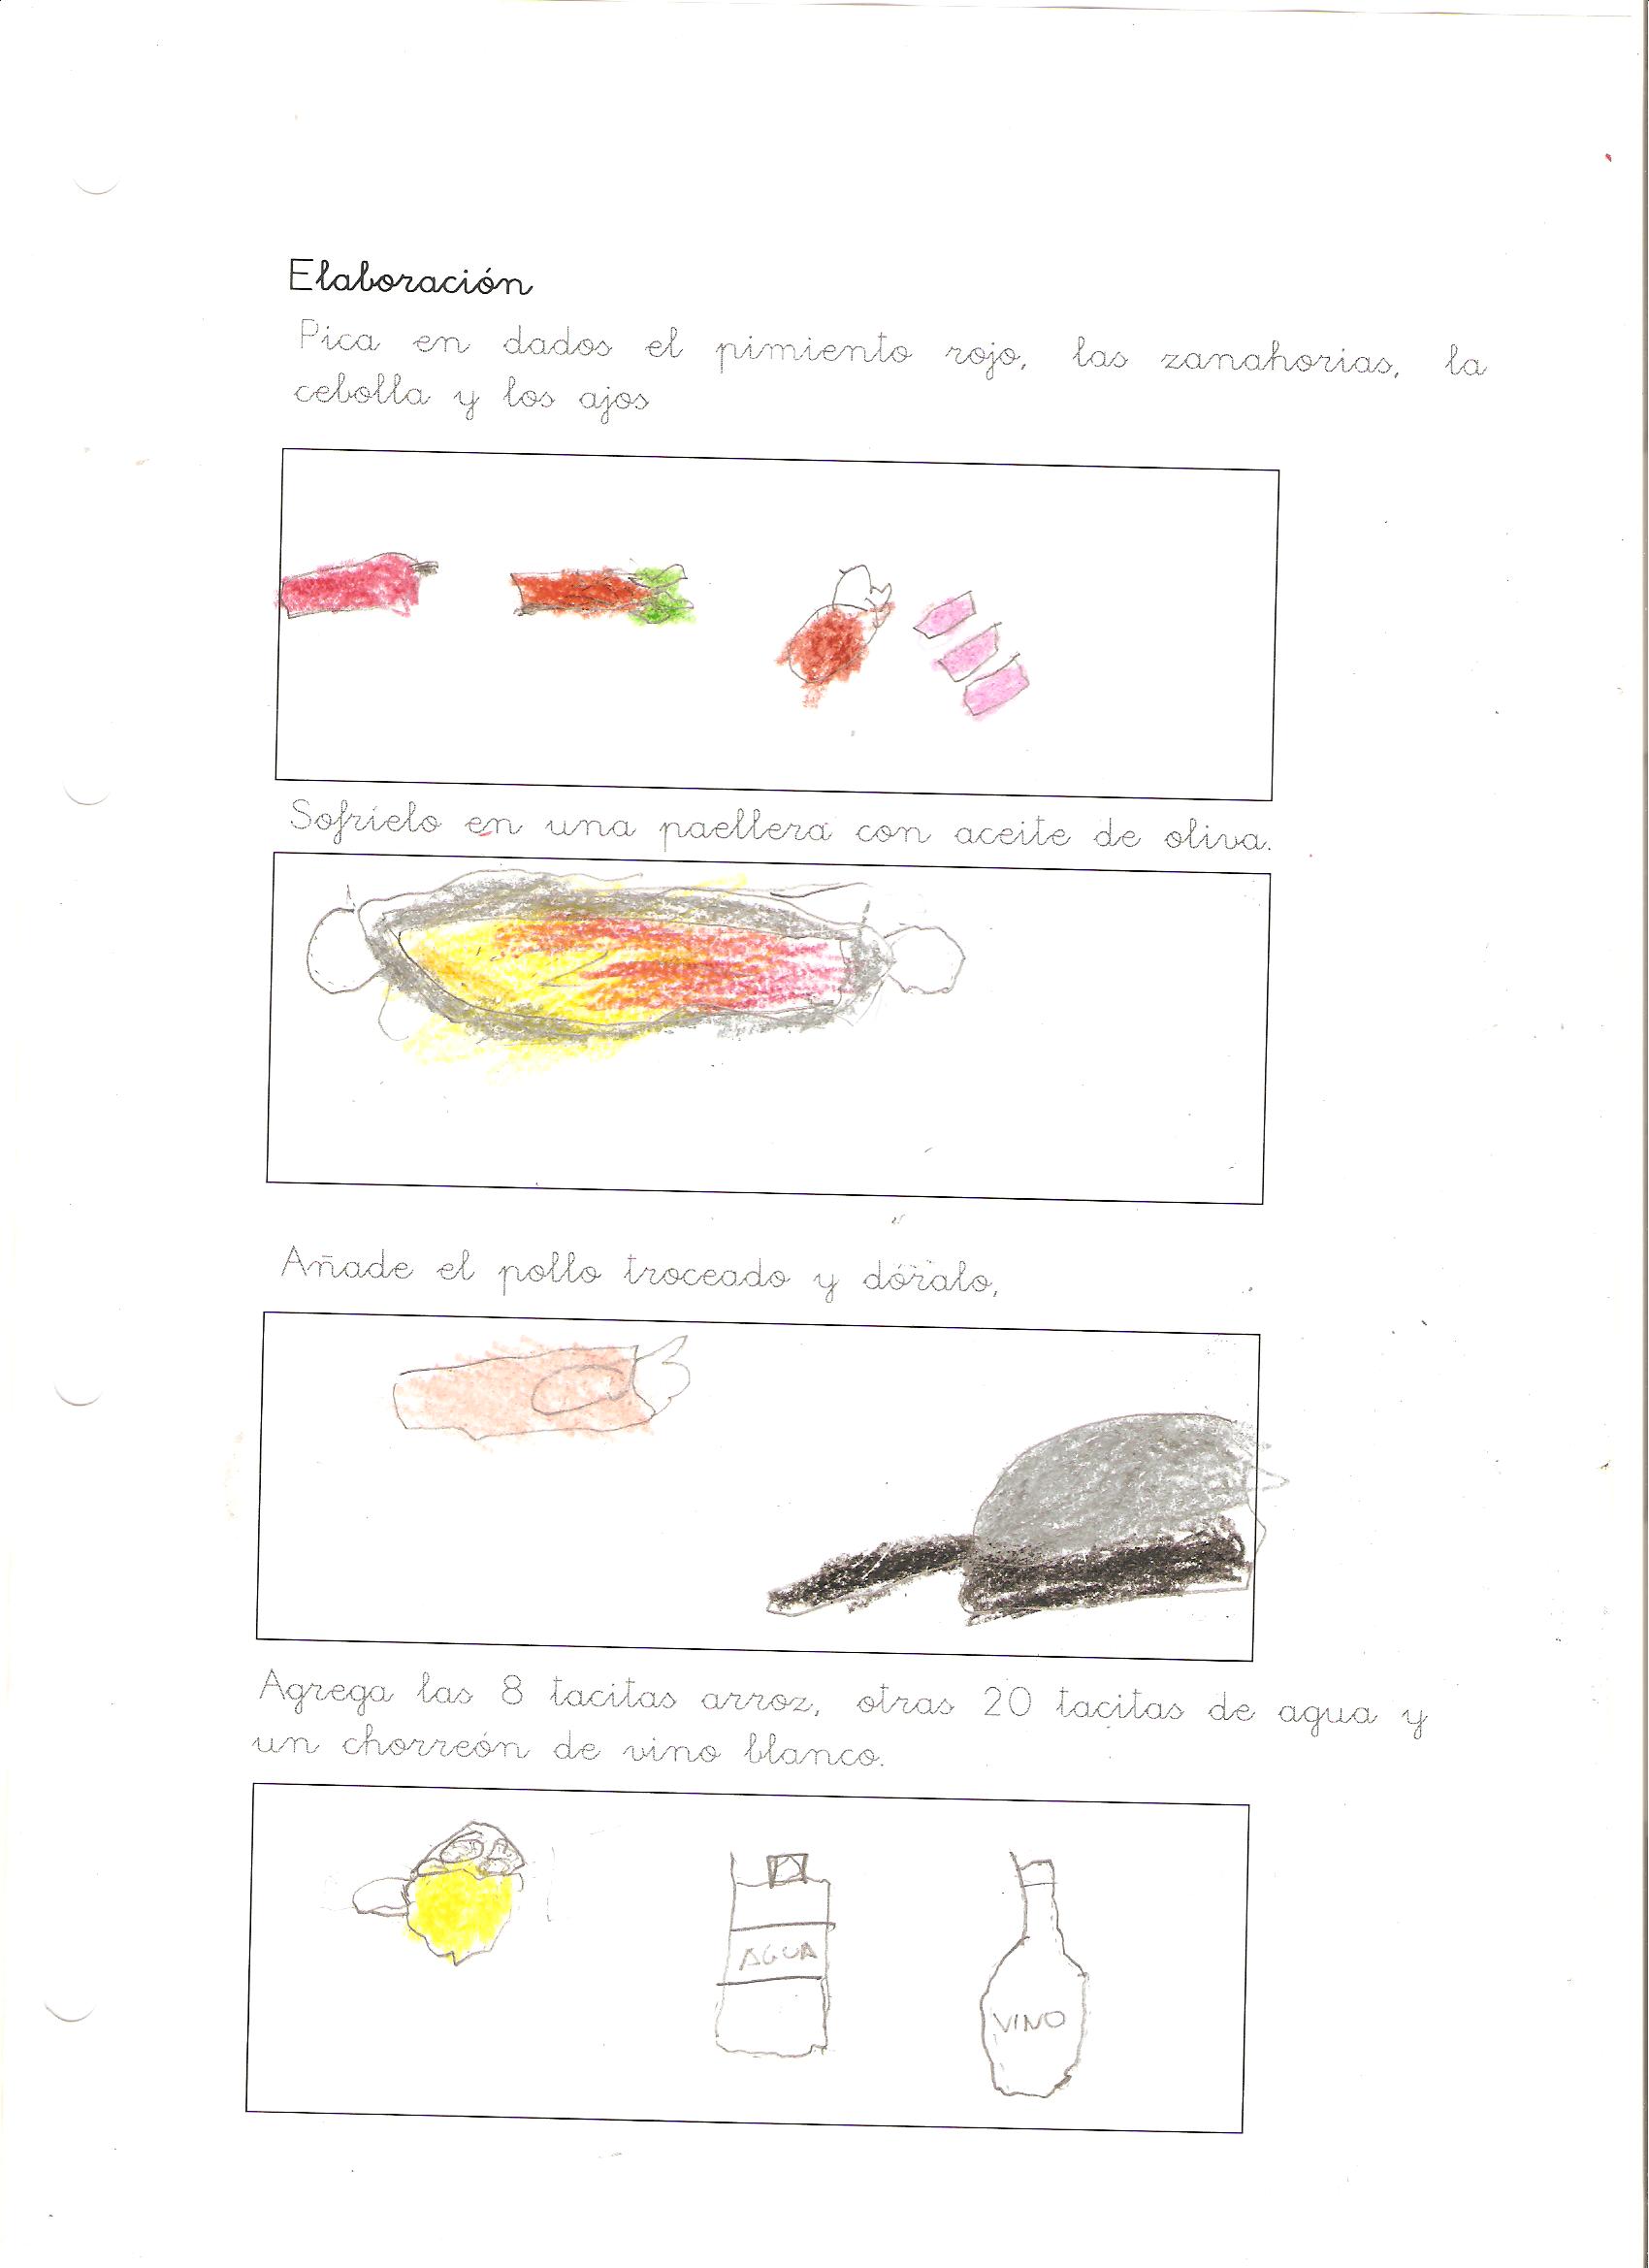 Elaboración
Pica en dados el pimiento rojo, las zanahorias, la
cebolla y los ajos
Sofríelo en una paellera con aceite de oliva.
Añade el pollo troceado y dóralo,
Agrega las 8 tacitas arroz, otras 20 tacitas de agua y
un chorreón de vino blanco.
AGUA
VINO